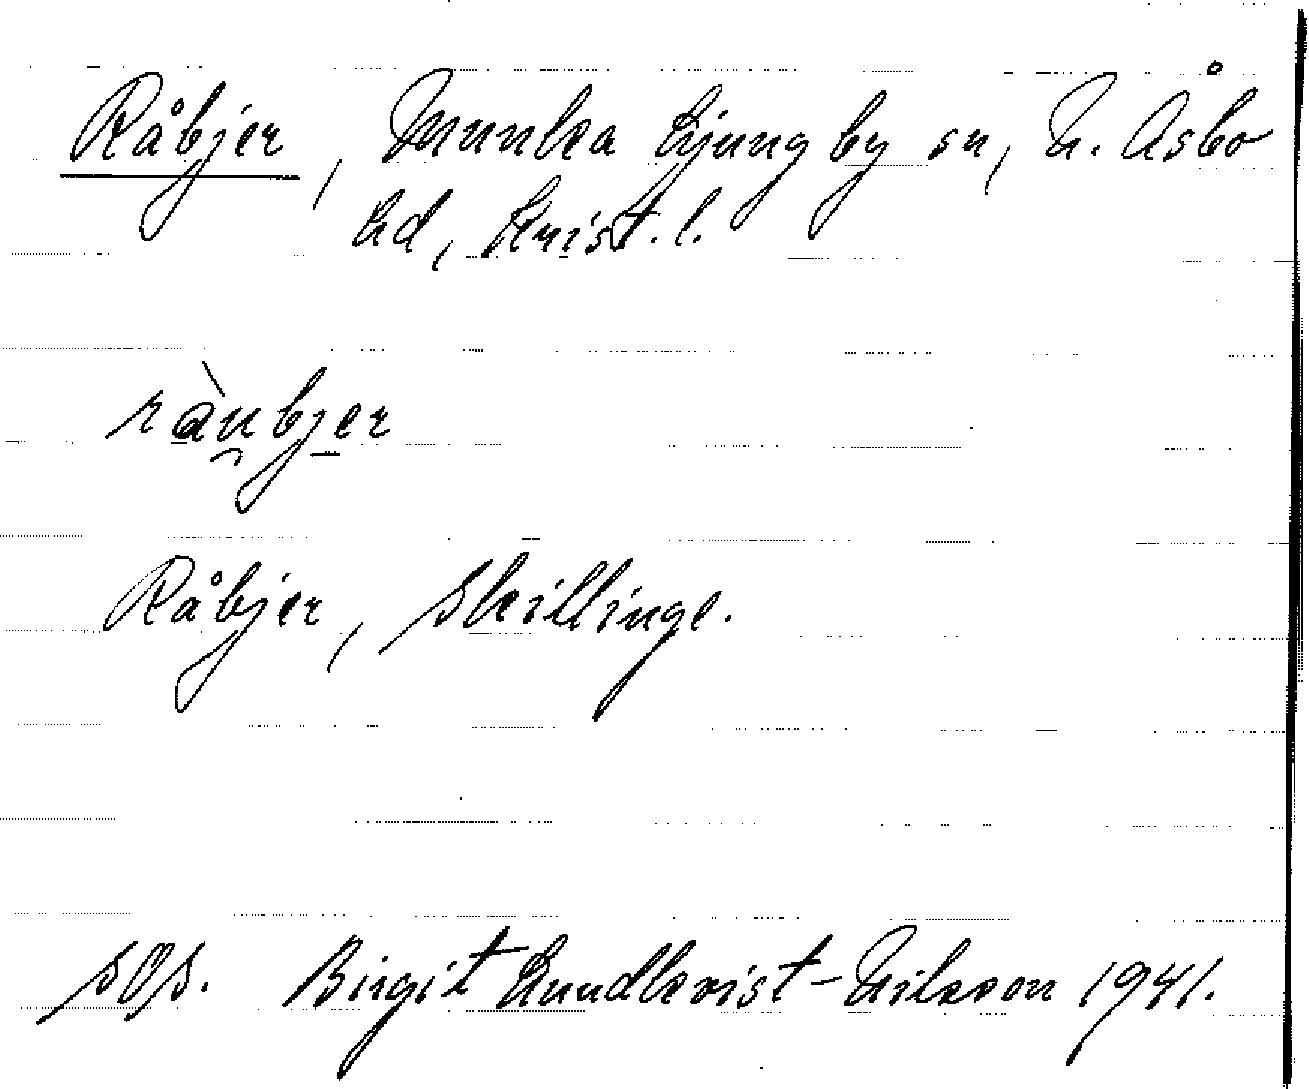 Råbjer, Munka Ljungby sn, N. Åsbo
hd, Krist. l.
ràu̯bjer
Råbjer, Skillinge.
sås. Birgit Lundkvist-Nilsson 1941.